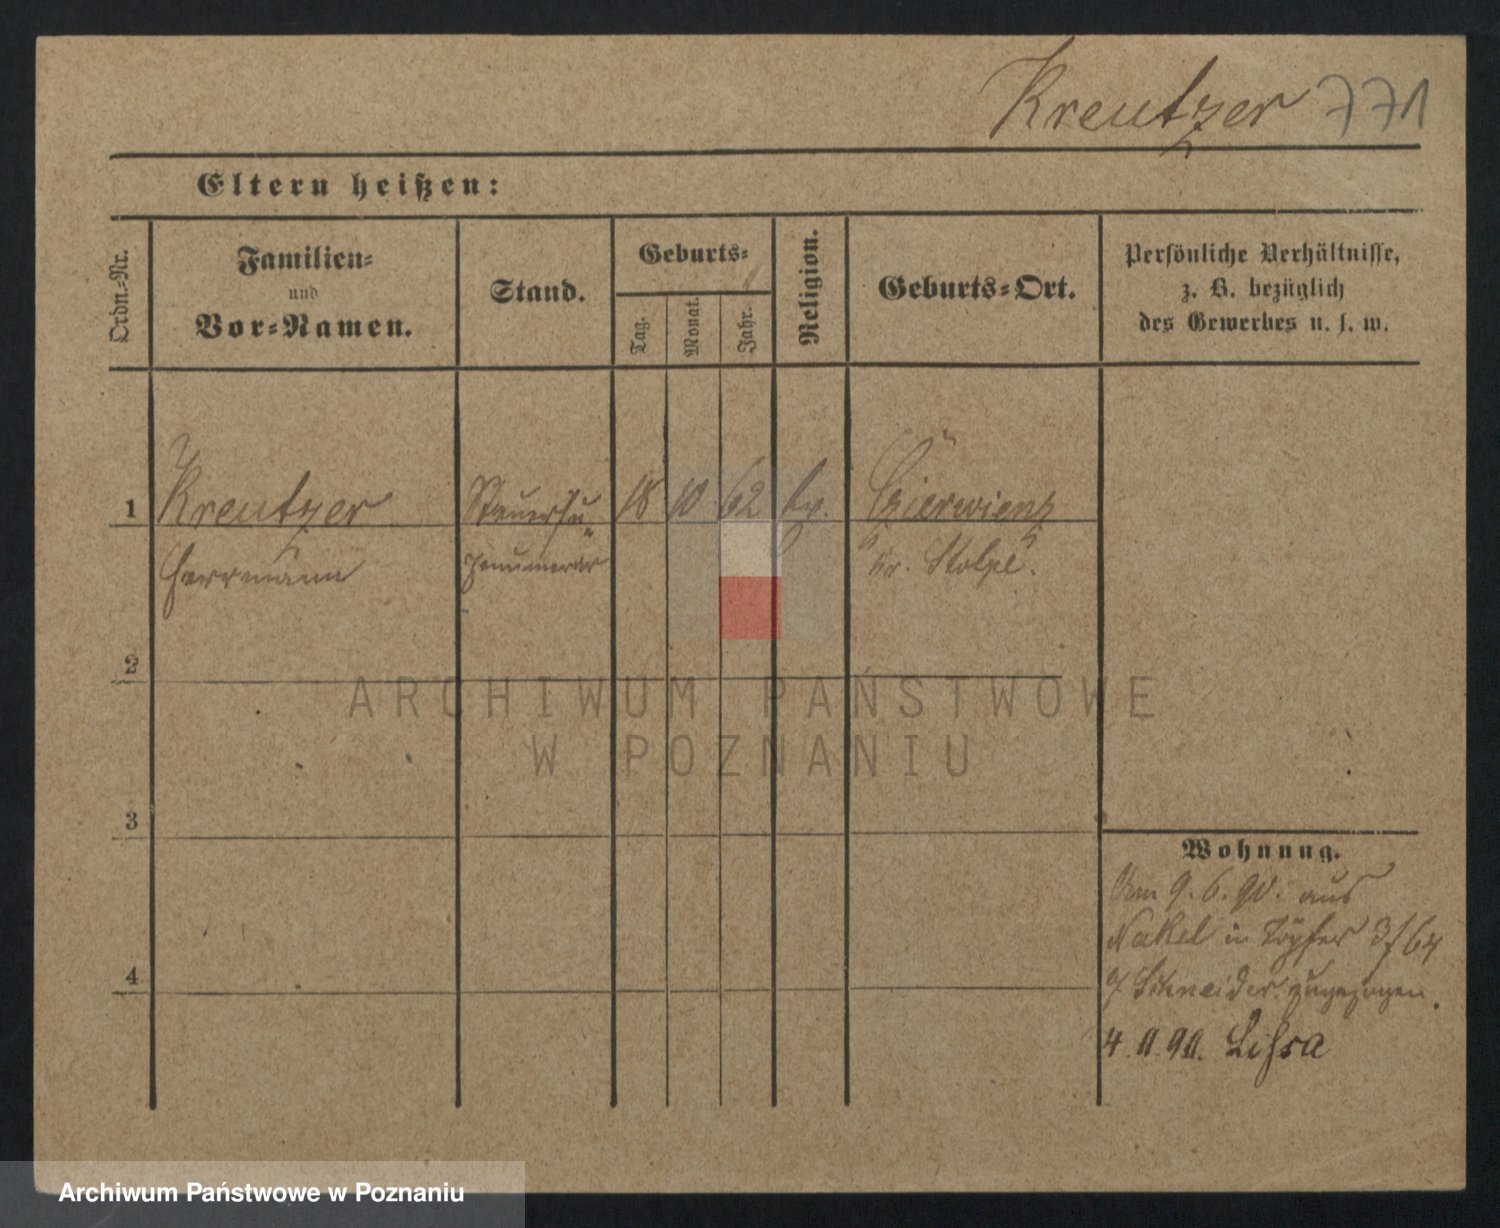 Kreutzer 771
Eltern heißen:
Ordn.-Nr.
Familien-
und
Vor-Namen.
Stand.
Geburts-
Tag.
Monat.
Jahr.
Religion.
Geburts-Ort.
Persönliche Verhältnisse,
z. B. bezüglich
des Gewerbes u. s. w.
1 Kreutzer Steuersu- 18 10 62 Ev.
Herrmann pernumerar Kr. Stolpe.
2
ARCHIWUM PAŃSTWOWE
W POZNANIU
3
Wohnung.
Am 9. 6. 90. aus
Nakel in Töpfer
4
Schneider zugezogen.
4. 11. 90. Lissa
Archiwum Państwowe w Poznaniu